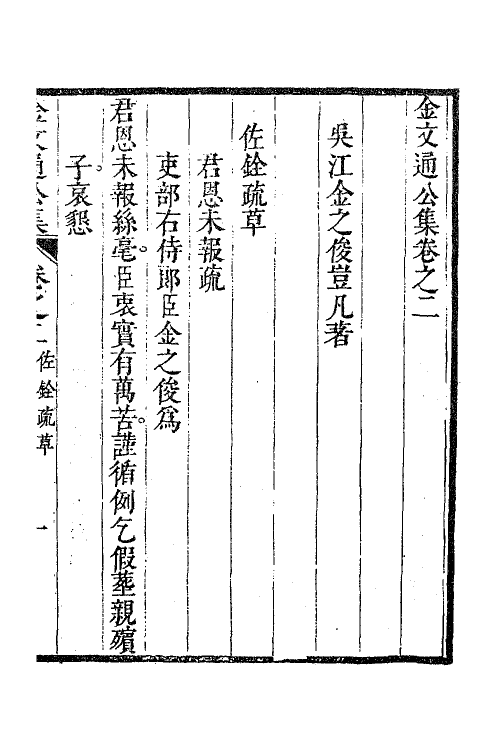 金文通公集卷之二
吳江金之俊豈凡著
佐銓疏草
君恩未報疏
吏部右侍郎臣金之俊爲
君恩未報絲毫。臣衷實有萬苦。謹循例乞假葬親殯
子。哀懇
金文通公集 卷之二 佐銓疏草 一